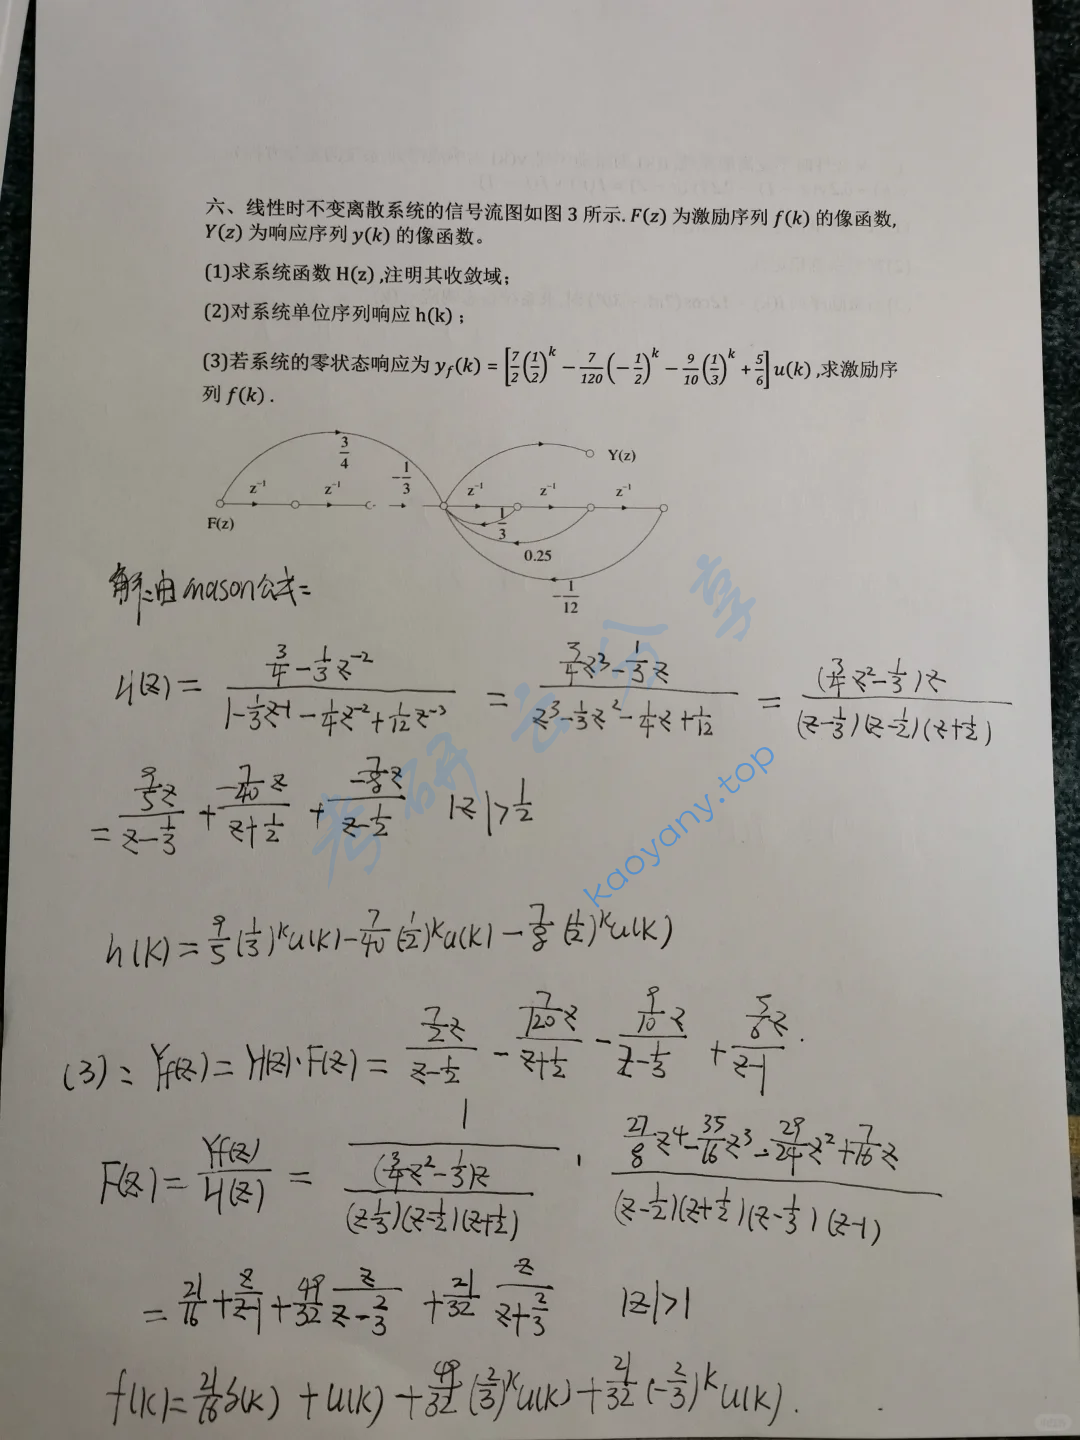 六、线性时不变离散系统的信号流图如图 3 所示. F(z) 为激励序列 f(k) 的像函数,
Y(z) 为响应序列 y(k) 的像函数。
(1)求系统函数 H(z) ,注明其收敛域；
(2)对系统单位序列响应 h(k)；
(3)若系统的零状态响应为 y_f(k) = [7/2 (1/2)^k − 7/120 (−1/2)^k − 9/10 (1/3)^k + 5/6] u(k) ,求激励序
列 f(k) .
3/4
−1/3
Y(z)
z⁻¹ z⁻¹ z⁻¹ z⁻¹ z⁻¹
F(z)
1/3
0.25
−1/12
解:由mason公式=
H(z) = (3/4 − 1/3 z⁻²)/(1 − 1/3 z⁻¹ − 1/4 z⁻² + 1/12 z⁻³) = (3/4 z³ − 1/3 z)/(z³ − 1/3 z² − 1/4 z + 1/12) = (3/4 z² − 1/3)z/((z − 1/3)(z − 1/2)(z + 1/2))
= (9/5 z)/(z − 1/3) + (−7/40 z)/(z + 1/2) + (−7/8 z)/(z − 1/2) |z| > 1/2
h(k) = 9/5 (1/3)^k u(k) − 7/40 (−1/2)^k u(k) − 7/8 (1/2)^k u(k)
(3): Yf(z) = H(z)·F(z) = (7/2 z)/(z − 1/2) − (7/120 z)/(z + 1/2) − (9/10 z)/(z − 1/3) + (5/6 z)/(z − 1).
F(z) = Yf(z)/H(z) = 1/((3/4 z² − 1/3)z/((z − 1/3)(z − 1/2)(z + 1/2))) · (27/8 z⁴ − 35/16 z³ − 29/24 z² + 7/16 z)/((z − 1/2)(z + 1/2)(z − 1/3)(z − 1))
= 21/16 + z/(z − 1) + 49/32 z/(z − 2/3) + 21/32 z/(z + 2/3) |z| > 1
f(k) = 21/16 δ(k) + u(k) + 49/32 (2/3)^k u(k) + 21/32 (−2/3)^k u(k).
考研云分享
kaoyany.top